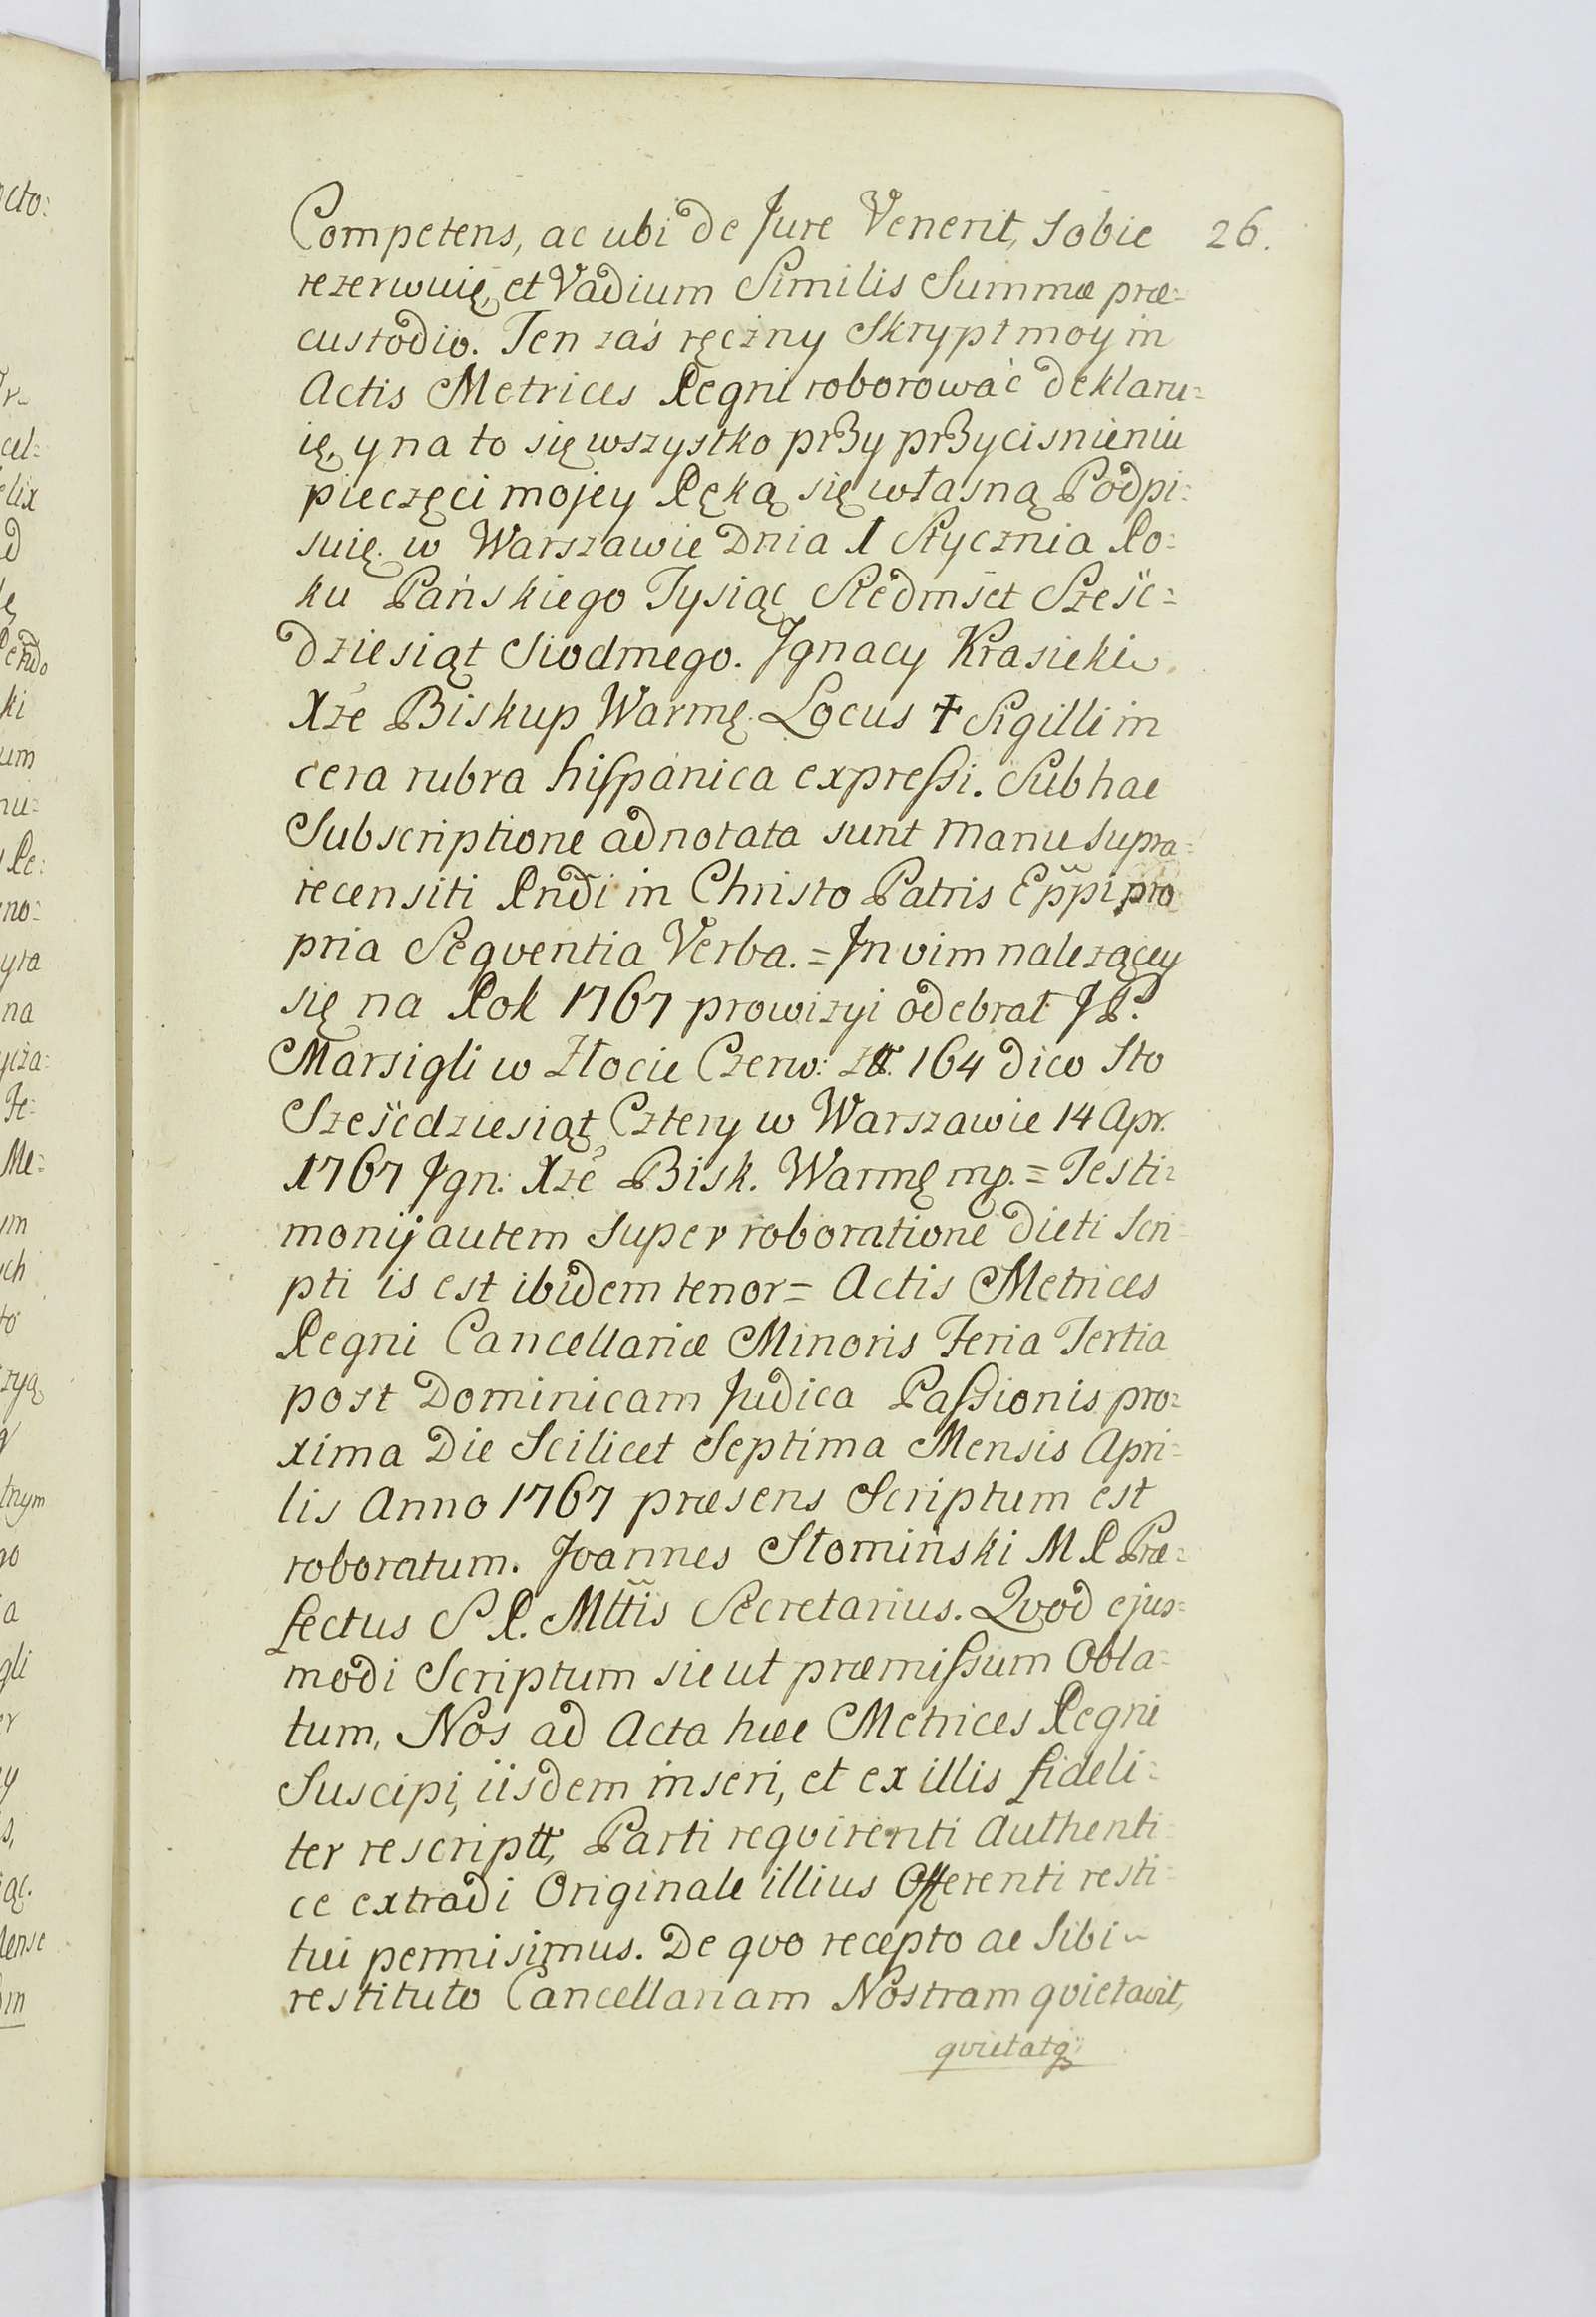 Competens, ac ubi de Jure Venerit, sobie 26.
rezerwuię, et Vadium Similis Summæ præ=
custodio. Ten zaś ręczny Skrypt moy in
Actis Metrices Regni roborować deklaru=
ię, y na to się wszystko przy przycisnieniu
pieczęci mojey Ręką się własną Podpi=
suię. w Warszawie Dnia 1 Stycznia Ro=
ku Pańskiego Tysiąc Siedmset Sześć=
dziesiąt Siodmego. Jgnacy Krasicki
Xże Biskup Warmę. Locus ✝ Sigilli in
cera rubra hispánica expressi. Sub hac
Subscriptione adnotata sunt manu supra=
recensiti Rndi in Christo Patris Eppi pro
pria Seqventia Verba. = Jn vim nalezącey
się na Rok 1767 prowizyi odebrał JP.
Marsigli w Złocie Czerw: zł. 164 dico Sto
Sześćdziesiąt Cztery w Warszawie 14 Apr.
1767 Jgn: Xże Bisk. Warmę mp. = Testi=
monij autem super roboratione dicti Scri=
pti is est ibidem tenor = Actis Metrices
Regni Cancellariæ Minoris Feria Tertia
post Dominicam Judica Passionis pro=
xima Die Scilicet Septima Mensis Apri=
lis Anno 1767 præsens Scriptum est
roboratum. Joannes Słomiński M R Præ=
fectus S R. Mttis Secretarius. Qvod ejus=
modi Scriptum sicut præmissum Obla=
tum, Nos ad Acta hæc Metrices Regni
Suscipi, iisdem inseri, et ex illis fideli=
ter rescriptt, Parti reqvirenti Authenti=
ce extradi Originale illius Offerenti resti=
tui permisimus. De qvo recepto ac Sibi
restituto Cancellariam Nostram qvietavit,
qvietatq;